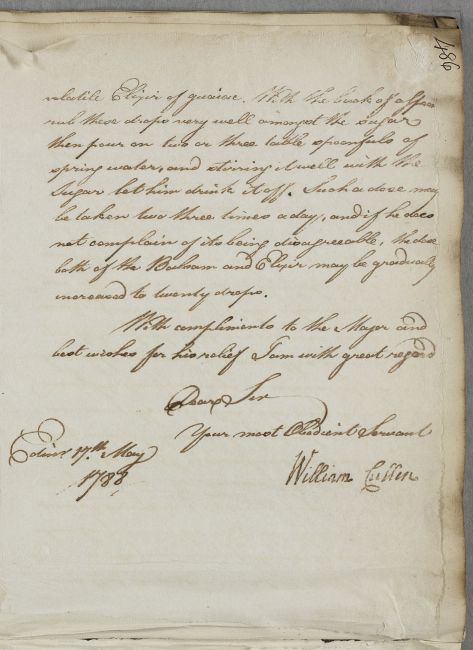 486
volatile Elixir of guaiac. With the back of a spoon
rub these drops very well amongst the sugar
then pour on two or three table spoonfuls of
spring water, and stirring it well with the
Sugar let him drink it off. Such a dose may
be taken two three times a day, and if he does
not complain of its being disagreeable, the dose
both of the Balsam and Elixir may be gradually
increased to twenty drops.
With compliments to the Major and
best wishes for his relief I am with great regard
Dear Sir
Your most Obedient Servant
Edinr 17th. May
1788
William Cullen